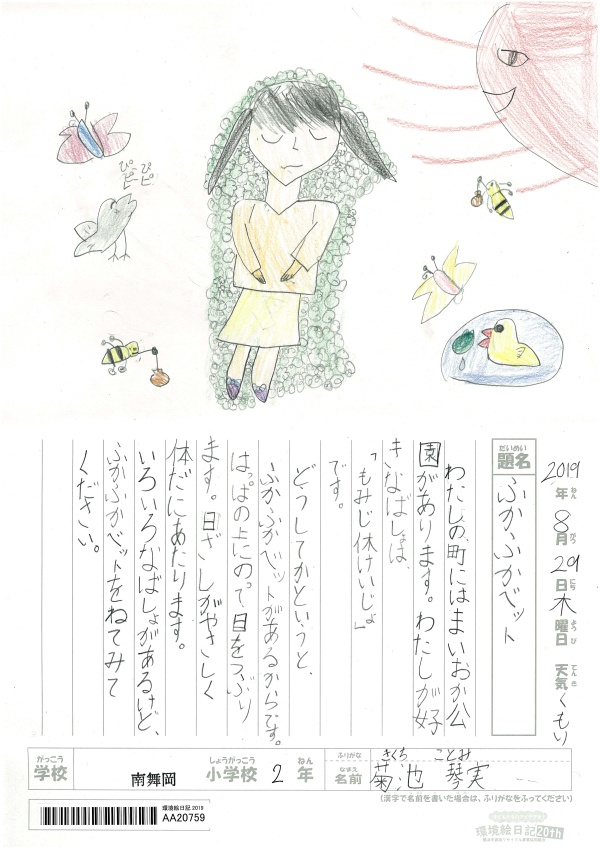 ぴーぴ
ピーピ
2019年ねん8月がつ29日にち木曜日ようび 天気てんき くもり
だいめい
題名
ふかふかベット
わたしの町にはまいおか公
園があります。わたしが好
きなばしょは、
「もみじ休けいじょ」
です。
どうしてかというと、
ふかふかベットがあるからです。
はっぱの上にのって、目をつぶり
ます。日ざしがやさしく
体だにあたります。
いろいろなばしょがあるけど、
ふかふかベットをねてみて
ください。
がっこう
学校
南舞岡
しょうがっこう
小学校
2
ねん
年
ふりがな
なまえ
名前
きくち ことみ
菊池 琴実
(漢字で名前を書いた場合は、ふりがなをふってください)
環境絵日記 2019
AA20759
環境絵日記20th